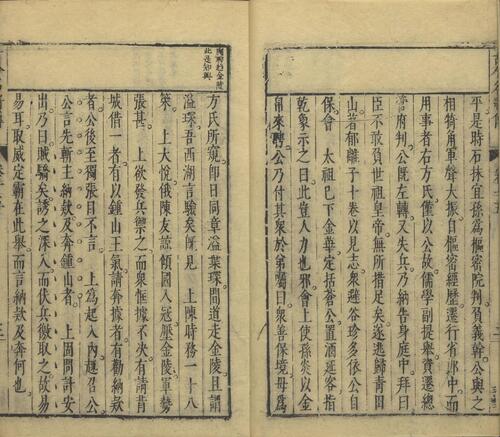 平是時石抹宜孫為樞密院判負義幹公與之
相犄角軍聲大振自樞密經歷遷行省郎中而
用事者右方氏僅以公故儒學副提舉賞遷總
管府判公既左轉又失兵乃納告身庭中拜曰
臣不敢負世祖皇帝無所措足矣遂逃歸青田
山著郁離子十卷以見志衆避谷珍多依公自
保會 太祖已下金華定括蒼公置酒延客指
乾象示之曰此豈人力也邪會上使孫炎以金
帛來聘公乃付其衆於弟囑曰衆善保境毋為
方氏所窺即日同章溢葉琛間道走金陵且謂
溢琛吾西湖言驗矣既見 上陳時務一十八
策 上大悅俄陳友諒傾國入寇壓金陵軍勢
張甚 上欲發兵禦之而衆恇擾不決有請背
城借一者有以鍾山王氣請奔據者有勸納欵
者公後至獨張目不言 上為起入內趣召公
公言先斬主納欵及奔鍾山者 上固問計安
出乃曰賊驕矣誘之深入而伏兵徼取之故易
易耳取威定霸在此舉而言納欵及奔何也
陵聘趋金陵
此是知興